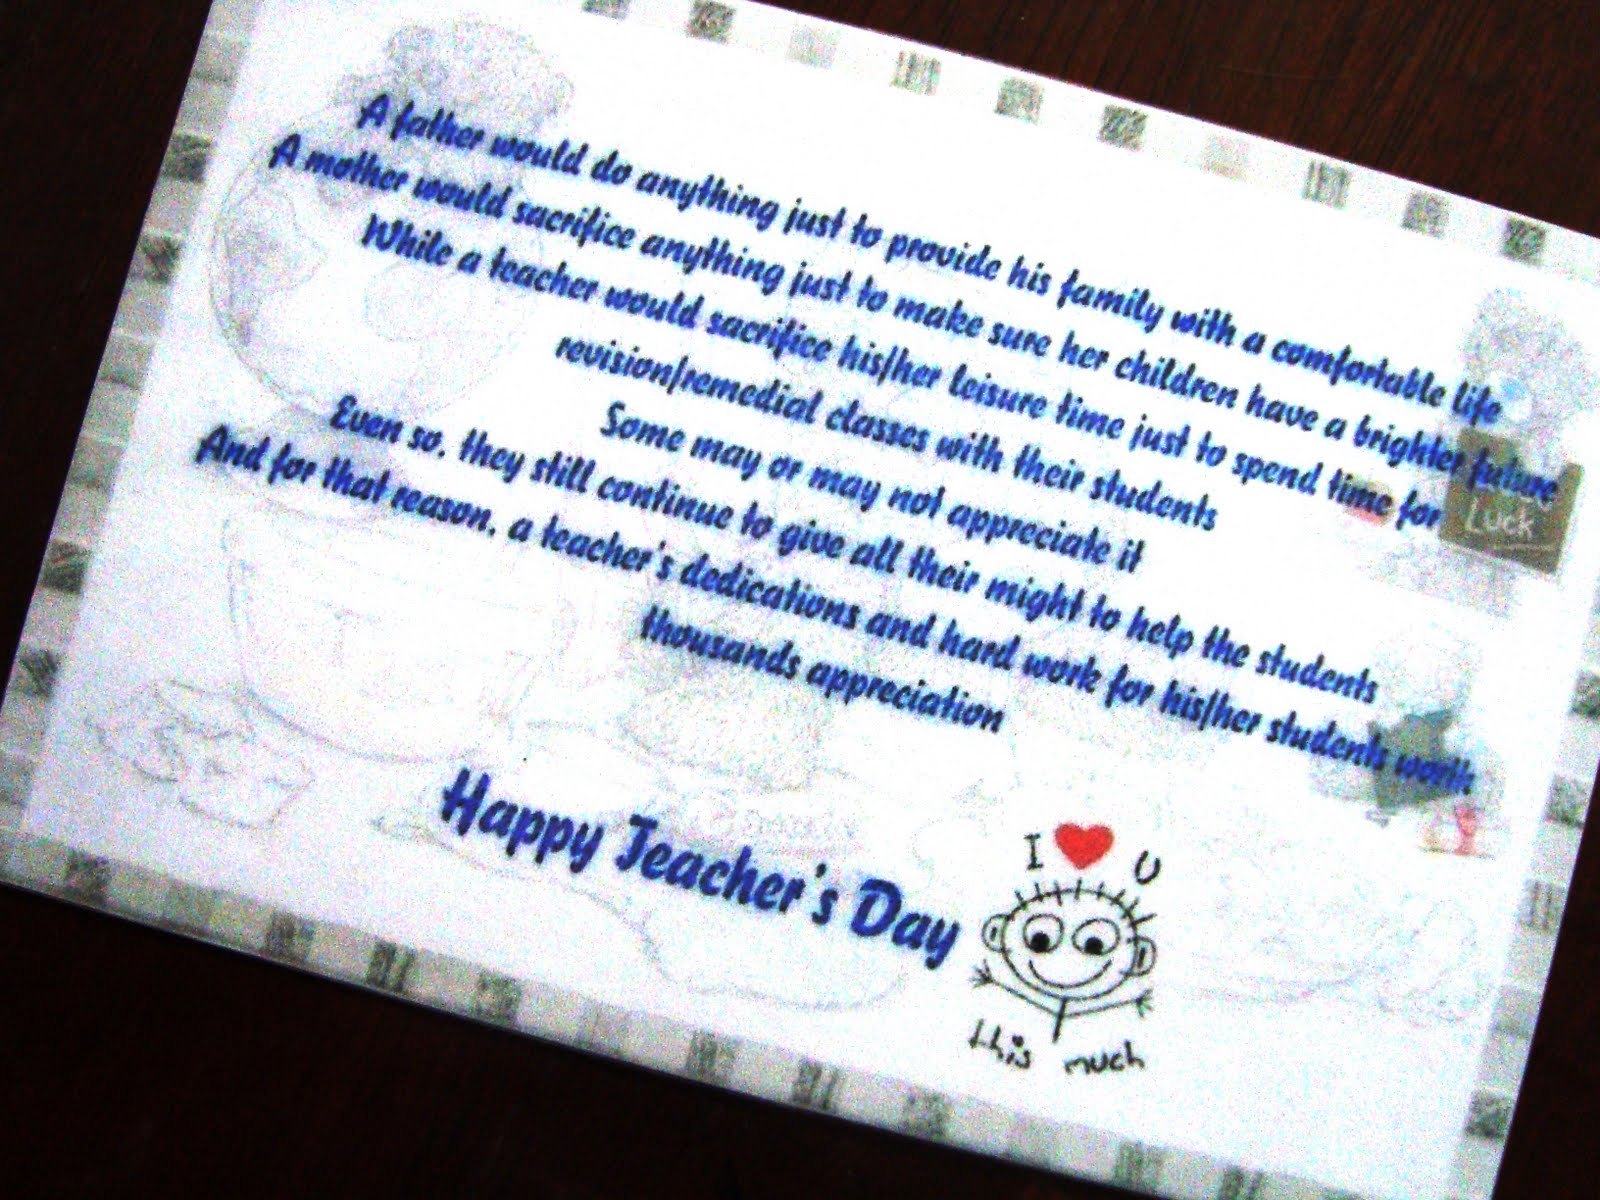 A father would do anything just to provide his family with a comfortable life
A mother would sacrifice anything just to make sure her children have a brighter future
While a teacher would sacrifice his/her leisure time just to spend time for
revision/remedial classes with their students
Some may or may not appreciate it
Even so, they still continue to give all their might to help the students
And for that reason, a teacher's dedications and hard work for his/her students worth
thousands appreciation
Luck
Happy Teacher's Day
I U
this much